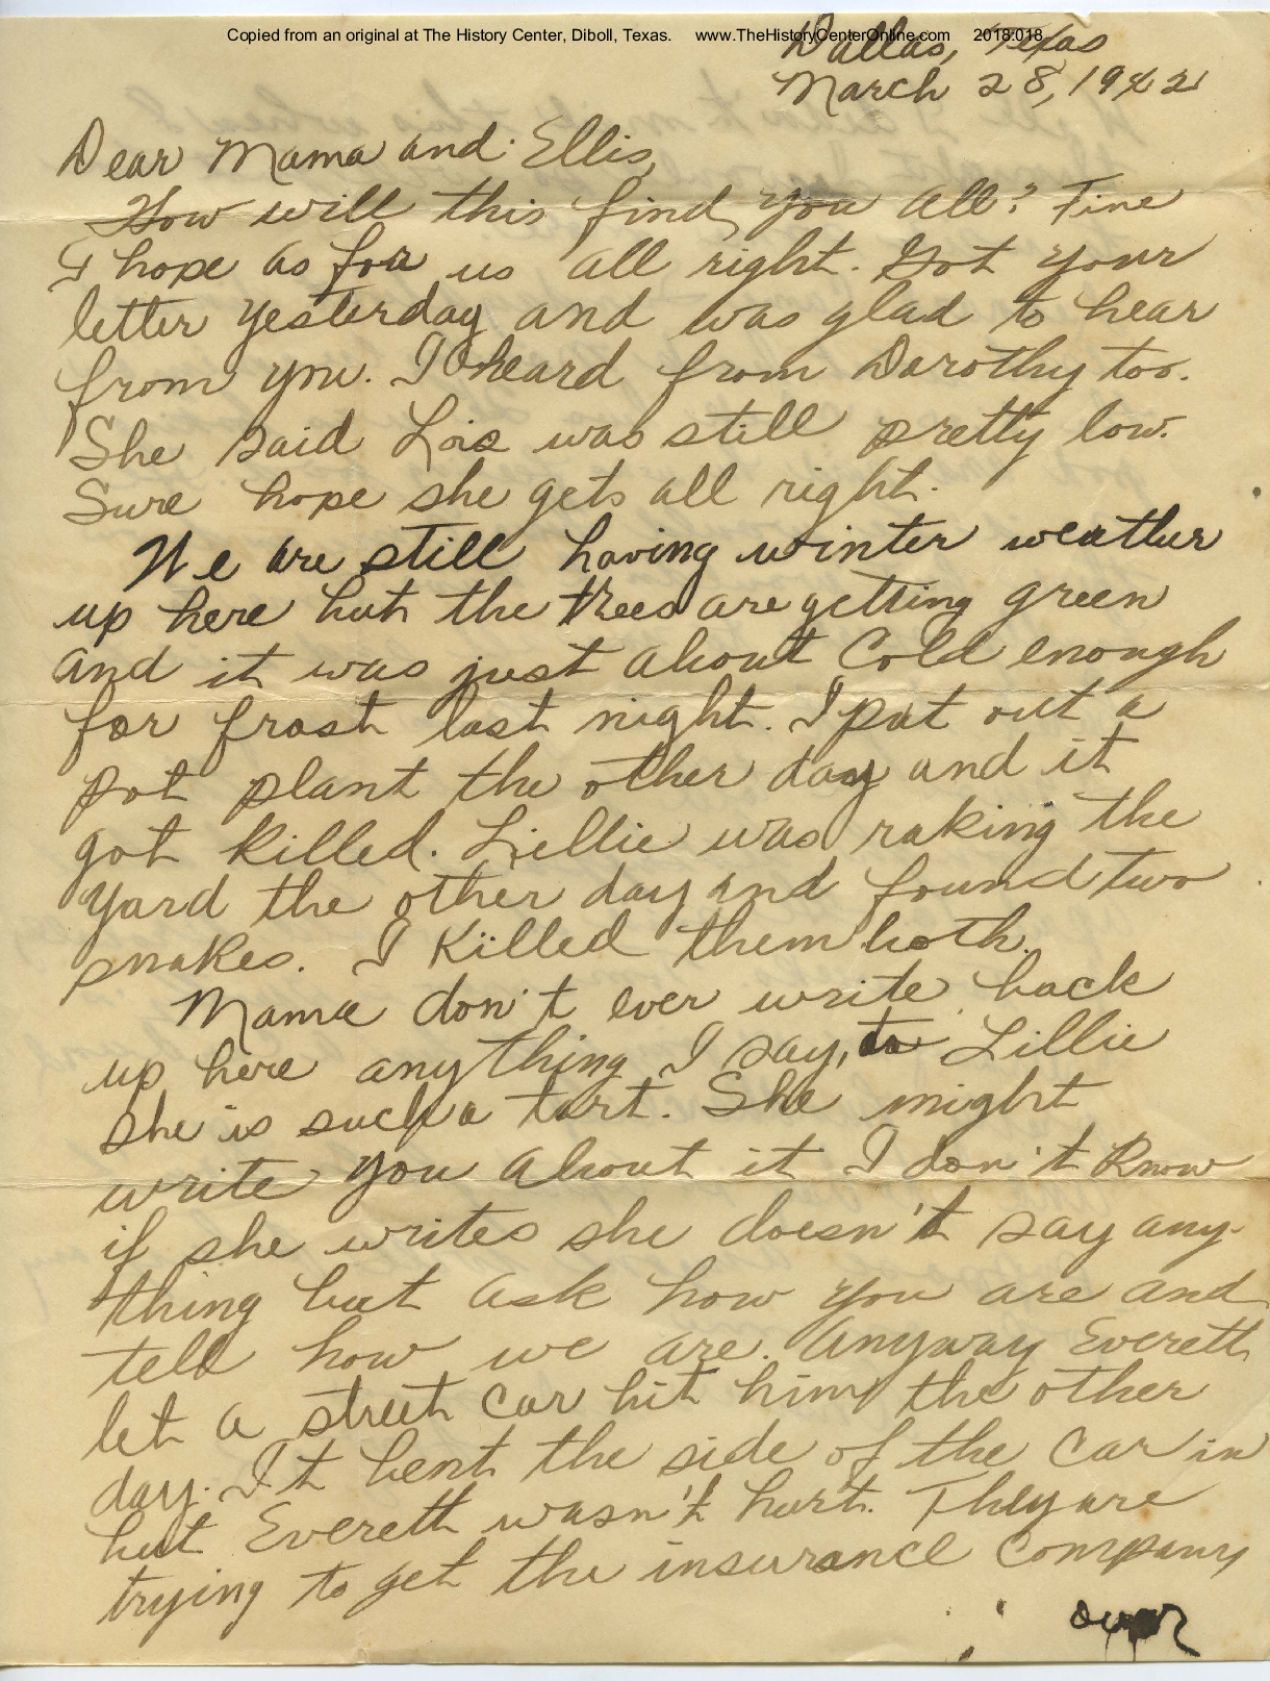 Copied from an original at The History Center, Diboll, Texas. www.TheHistoryCenterOnline.com 2018:018
Dallas, Texas
March 28, 1942
Dear Mama and Ellis,
How will this find you all? Fine
I hope as for us all right. Got your
letter yesterday and was glad to hear
from you. I heard from Dorothy too.
She said Lois was still pretty low.
Sure hope she gets all right.
We are still having winter weather
up here but the trees are getting green
and it was just about cold enough
for frost last night. I put out a
pot plant the other day and it
got killed. Lillie was raking the
yard the other day and found two
snakes. I killed them both.
Mama don't ever write back
up here anything I say, to Lillie
she is such a tart. She might
write you about it I don't know
if she writes she doesn't say any-
thing but ask how you are and
tell how we are. Anyway Everett
let a street car hit him the other
day. It bent the side of the car in
but Everett wasn't hurt. They are
trying to get the insurance company
over